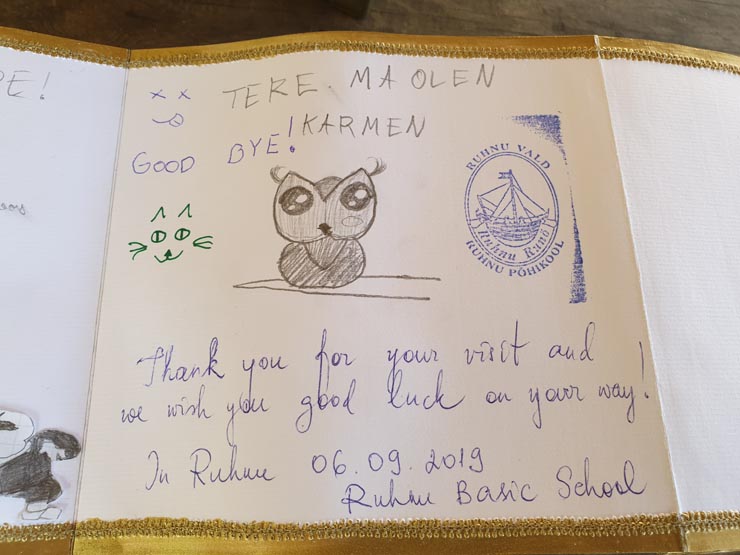 PE!
TERE. MA OLEN
KARMEN
GOOD BYE!
RUHNU VALD
Ruhnu Rand
RUHNU PÕHIKOOL
Thank you for your visit and
we wish you good luck on your way!
In Ruhnu 06.09.2019
Ruhnu Basic School